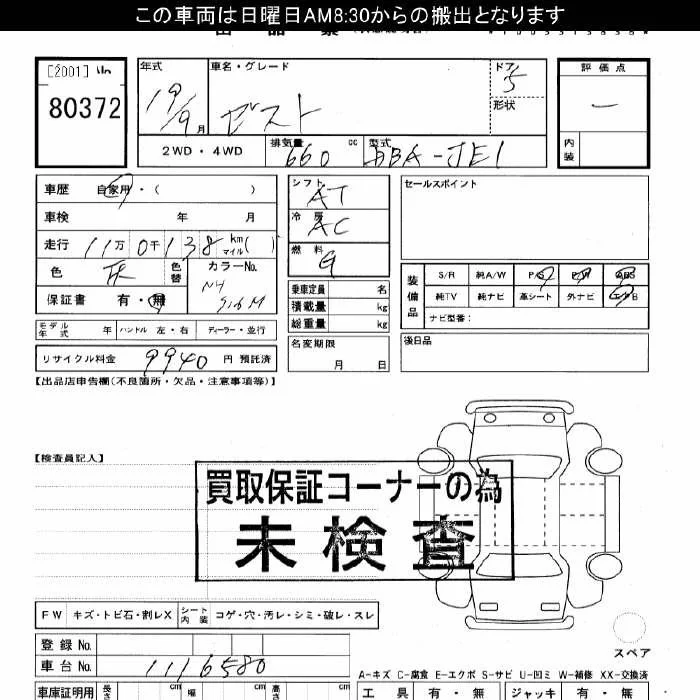 この車両は日曜日AM8:30からの搬出となります
[2001]
80372
年式 19/9月
車名・グレード ゼスト
ドア 5
形状
評価点 ー
内装
2WD・4WD
排気量 660 cc
型式 DBA-JE1
車歴 自家用・( )
車検 年 月
走行 11万0千138 km マイル( )
色 灰 色替
カラーNo. NH
保証書 有・無
モデル年式 年 ハンドル 左・右 ディーラー・並行
リサイクル料金 9940 円 預託済
シフト AT
冷房 AC
燃料 G
乗車定員 名
積載量 kg
総重量 kg
名変期限 月 日
セールスポイント
装備品 S/R 純A/W P/S P/W ABS
純TV 純ナビ 革シート 外ナビ エアB
ナビ型番:
後日品
【出品店申告欄(不良箇所・欠品・注意事項等)】
【検査員記入】
買取保証コーナーの為
未検査
FW キズ・トビ石・割レX シート内装 コゲ・穴・汚レ・シミ・破レ・スレ
スペア
登録No.
車台No. 1116580
A-キズ C-腐食 E-エクボ S-サビ U-凹ミ W-補修 XX-交換済
車庫証明用 長さ cm 幅 cm 高さ cm
工具 有・無 ジャッキ 有・無